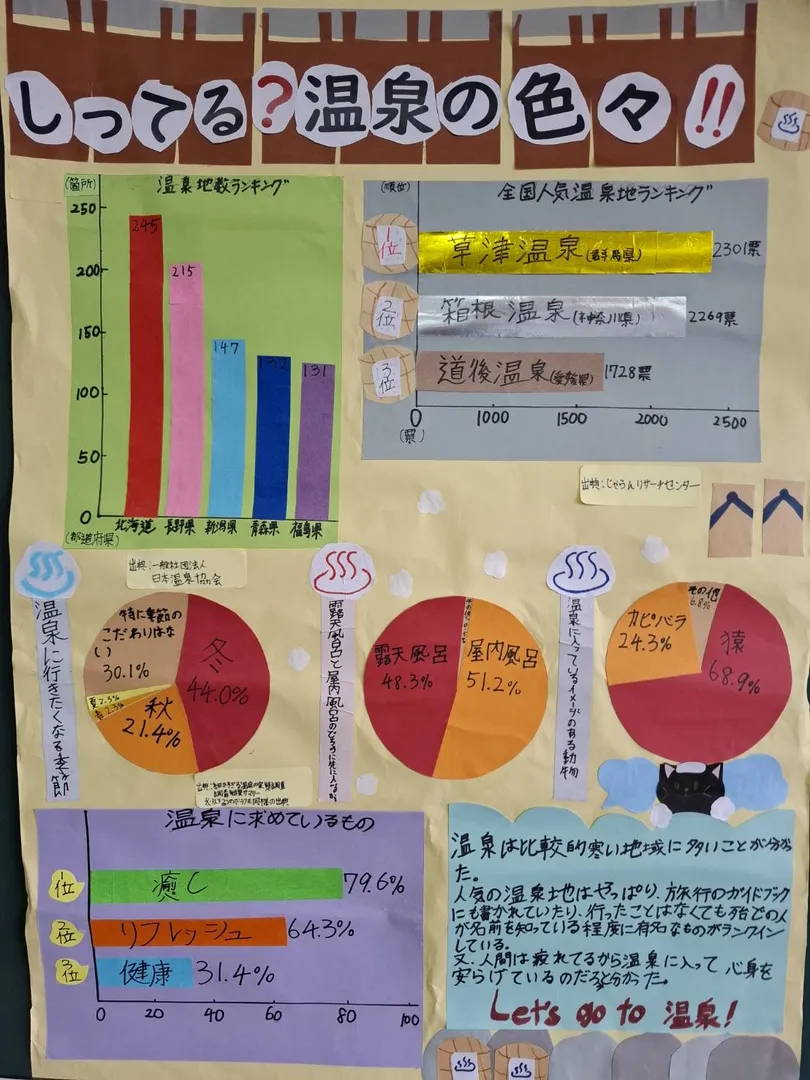 しってる?温泉の色々!!
(箇所)
温泉地数ランキング
250
200
150
100
50
0
245
215
147
132
131
北海道 長野県 新潟県 青森県 福島県
(都道府県)
出典:一般社団法人
日本温泉協会
(順位)
全国人気温泉地ランキング
1位
草津温泉(群馬県)
2301票
2位
箱根温泉(神奈川県)
2269票
3位
道後温泉(愛媛県)
1728票
0 1000 1500 2000 2500
(票)
出典:じゃらんリサーチセンター
温泉に行きたくなる季節
特に季節の
こだわりはな
い
30.1%
冬
44.0%
秋
21.4%
夏2.3%
春2.3%
露天風呂と屋内風呂のどちらに先に入るか
露天風呂
48.3%
屋内風呂
51.2%
温泉に入っているイメージのある動物
カピバラ
24.3%
その他
6.8%
猿
68.9%
温泉に求めているもの
1位
癒し
79.6%
2位
リフレッシュ
64.3%
3位
健康
31.4%
0 20 40 60 80 100
温泉は比較的寒い地域に多いことが分かっ
た。
人気の温泉地はやっぱり、旅行のガイドブック
にも書かれていたり、行ったことはなくても殆どの人
が名前を知っている程度に有名なものがランクイン
している。
又、人間は疲れてるから温泉に入って心身を
安らげているのだろうと分かった。
Let's go to 温泉!